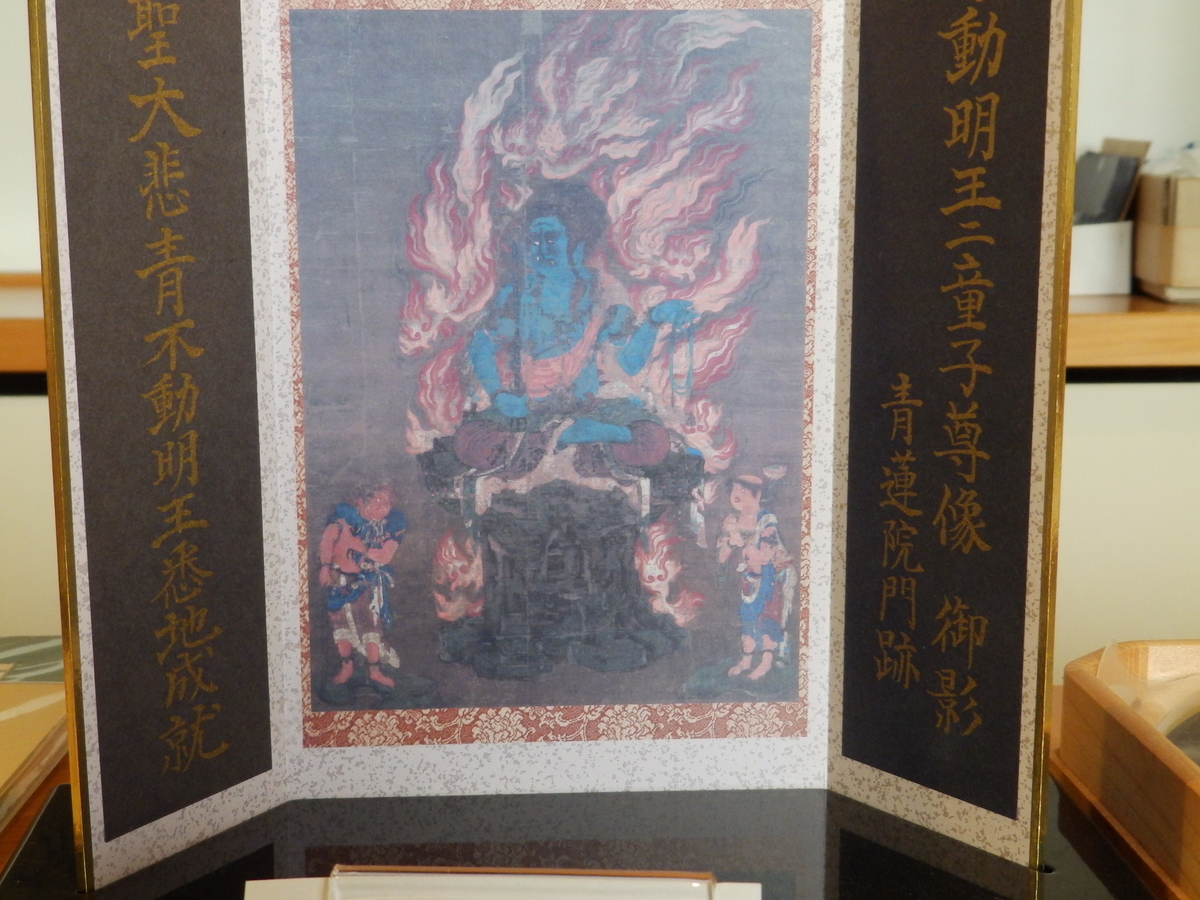 動明王二童子尊像 御影
青蓮院門跡
聖大悲青不動明王悉地成就